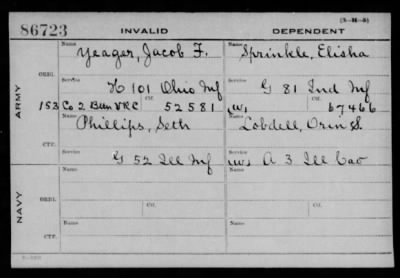 86723 INVALID DEPENDENT (3-16-5)
Name Name
Yeager, Jacob F. Sprinkle, Elisha
ORIG.
Service Service
H 101 Ohio Inf G 81 Ind Inf
ARMY
Ctf. Ctf.
153 Co 2 Batn VRC 52581 (W) 67466
Name Name
Phillips, Seth Lobdell, Orin S.
CTF.
Service Service
G 52 Ill Inf (W) A 3 Ill Cav
Name Name
NAVY
ORIG.
Ctf. Ctf.
Name Name
CTF.